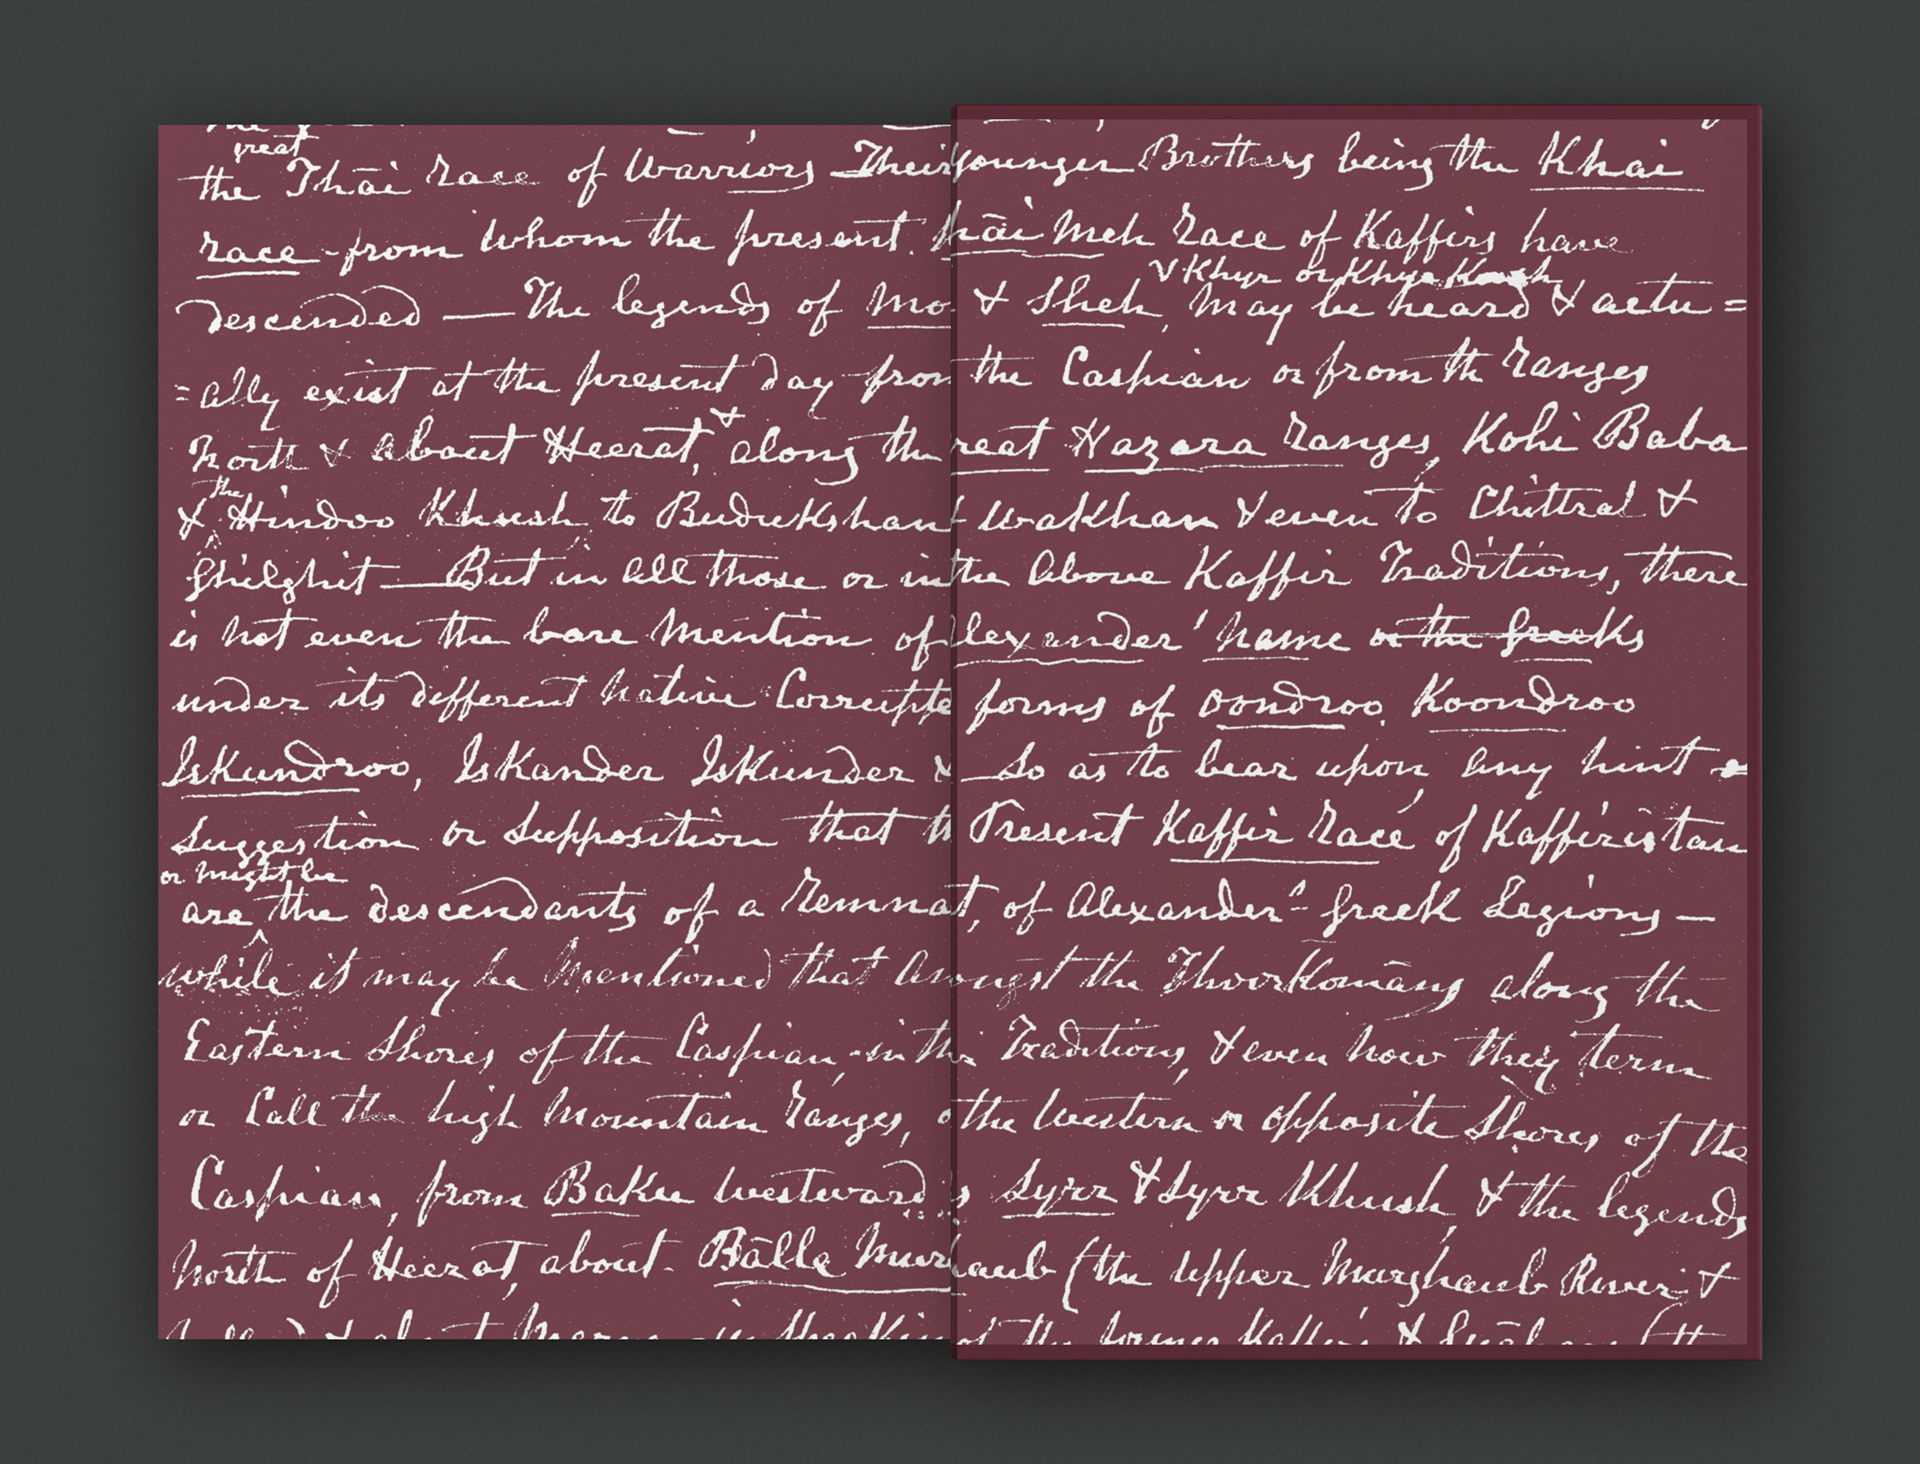 great
the Thāi race of Warriors – Their younger Brothers being the Khai
race - from whom the present. Khāi Meh race of Kaffirs have
v Khyr or Khyr Kush
descended — The legends of Mo & Sheh, may be heard & actu =
= ally exist at the present day from the Caspian or from th ranges
North & about Heerat, & along the reat Hazara ranges, Kohi Baba
the
& Hindoo Khush to Budukshan Wakhan & even to Chittral &
Ghilghit — But in all those or in the above Kaffir Traditions, there
is not even the bare mention of lexander' name or the Greeks
under its different native Corrupte forms of Oondroo Koondroo
Iskundroo, Iskander Iskunder & – So as to bear upon, any hint
suggestion or supposition that th Present Kaffir race of Kaffiristan
or might be
are the descendants of a remnat, of Alexander's Greek Legions —
while it may be mentioned that amongst the Thoorkomāns along the
Eastern Shores of the Caspian, in thi Traditions, & even now they term
or Call the high Mountain ranges, o the Western or opposite Shores of the
Caspian, from Baku westward s Syrr & Syrr Khush, & the legends
North of Heerat, about - Bālla Murhaub (the upper Murghaub River &